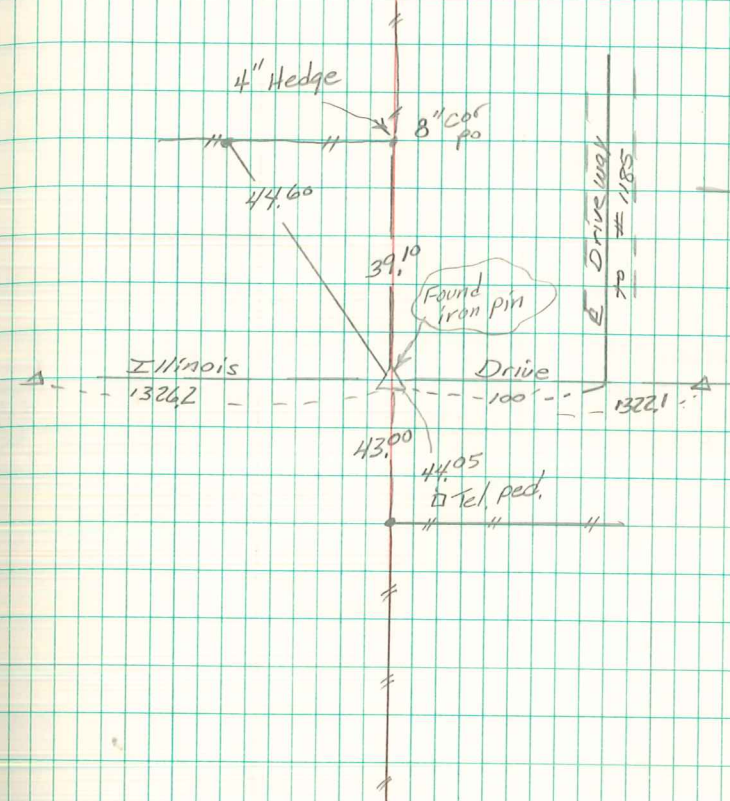 4" Hedge
8" Cor
po
44.60
39.10
Found
iron pin
℄ Driveway
to # 1185
Illinois
Drive
1326.2
100'
1322.1
43.00
44.05
Tel. ped.